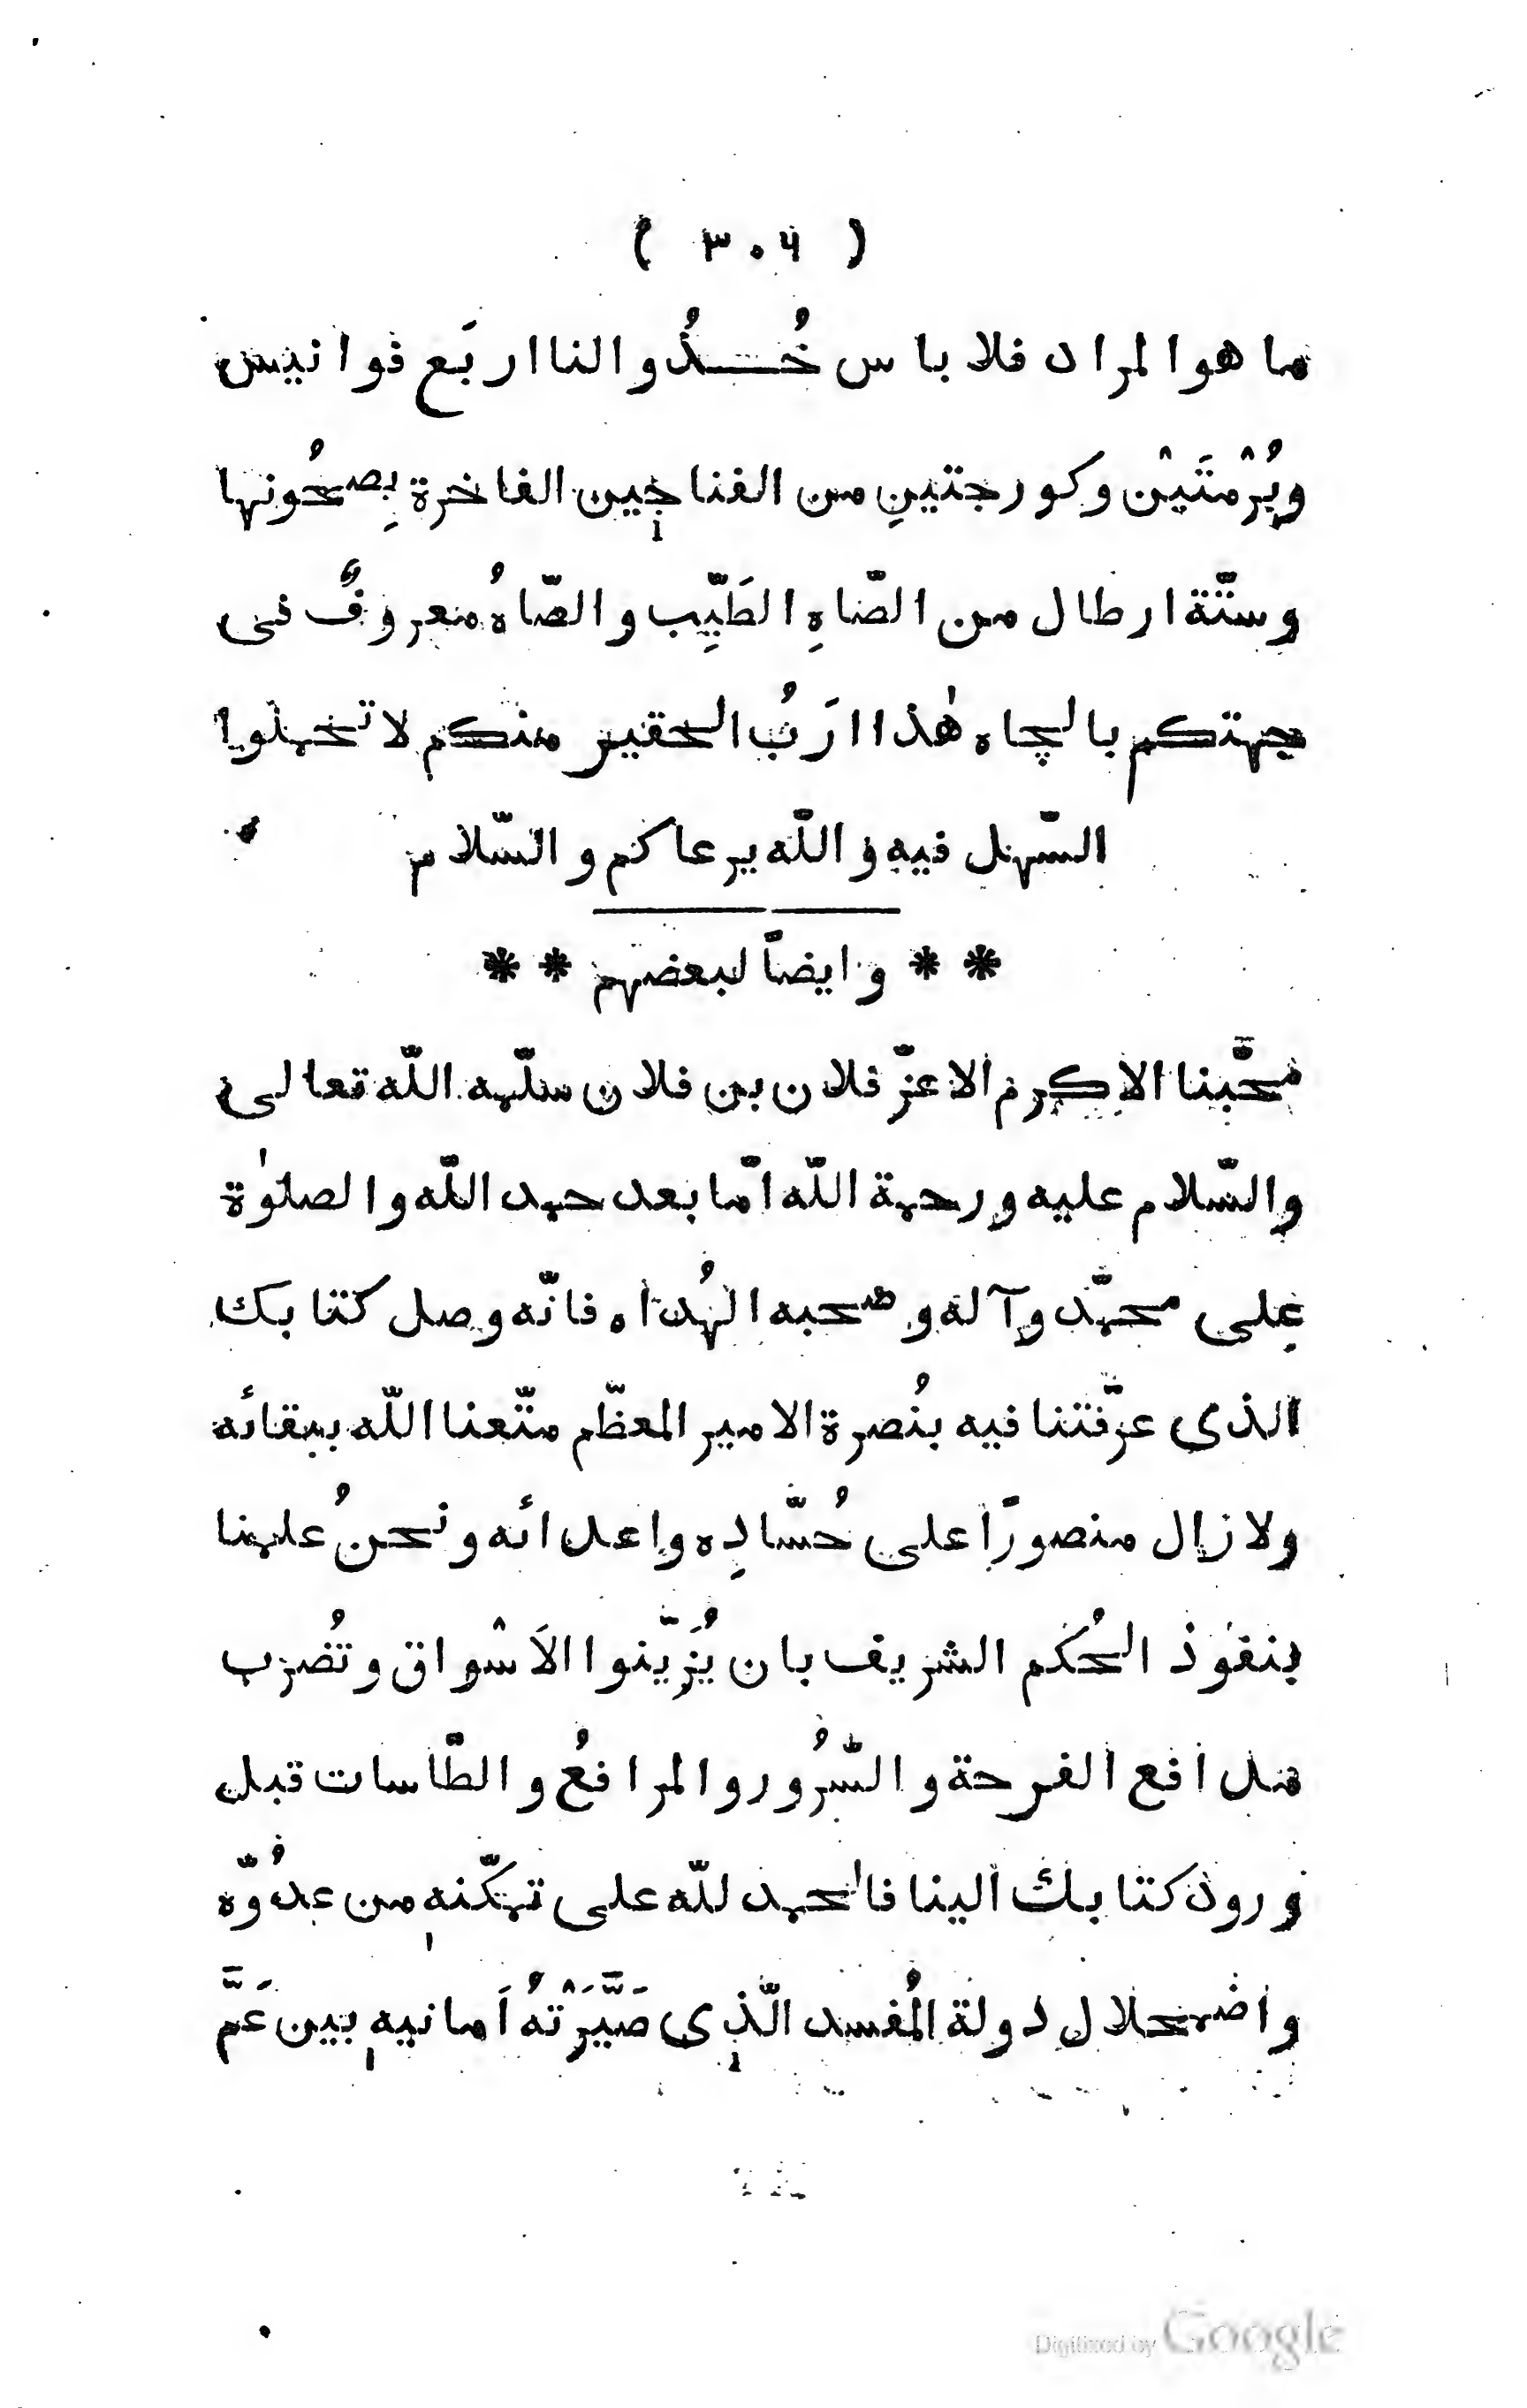 ( ٣٠٦ )
ما هو المراد فلا باس خُــذُوا لنا اربَع فوانيس
وبُرْمَتَيْن وكورجتينِ من الفناجين الفاخرة بِصحُونها
وستّة ارطال من الصّاهِ الطَيِّب والصّاهُ معروفٌ فى
جهتكم بالچاه هٰذا ارَبُ الحقير منكم لا تحملوا
السّهل فيه والله يرعاكم والسّلام
** وايضاً لبعضهم **
محّبنا الاكرم الاعزّ فلان بن فلان سلّمه اللّه تعالى
والسّلام عليه ورحمة اللّه امّا بعد حمد اللّه والصلوٰة
على محمّد وآله وصحبه الهُداه فانّه وصل كتابك
الذى عرّفتنا فيه بنُصرة الامير المعظّم متّعنا اللّه ببقائه
ولا زال منصورًا على حُسّادِه واعدائه ونحنُ علمنا
بنفوذ الحُكم الشريف بان يُزَيّنوا الاَسْواق وتُضرب
مدافع الفرحة والسُّرور والمرافعُ والطّاسات قبل
ورود كتابك الينا فالحمد للّه على تمكّنه من عدُوّه
واضمحلال دولة المُفسد الّذى صَيَّرَتْهُ اَمانيه بين عَمَّ
Digitized by Google